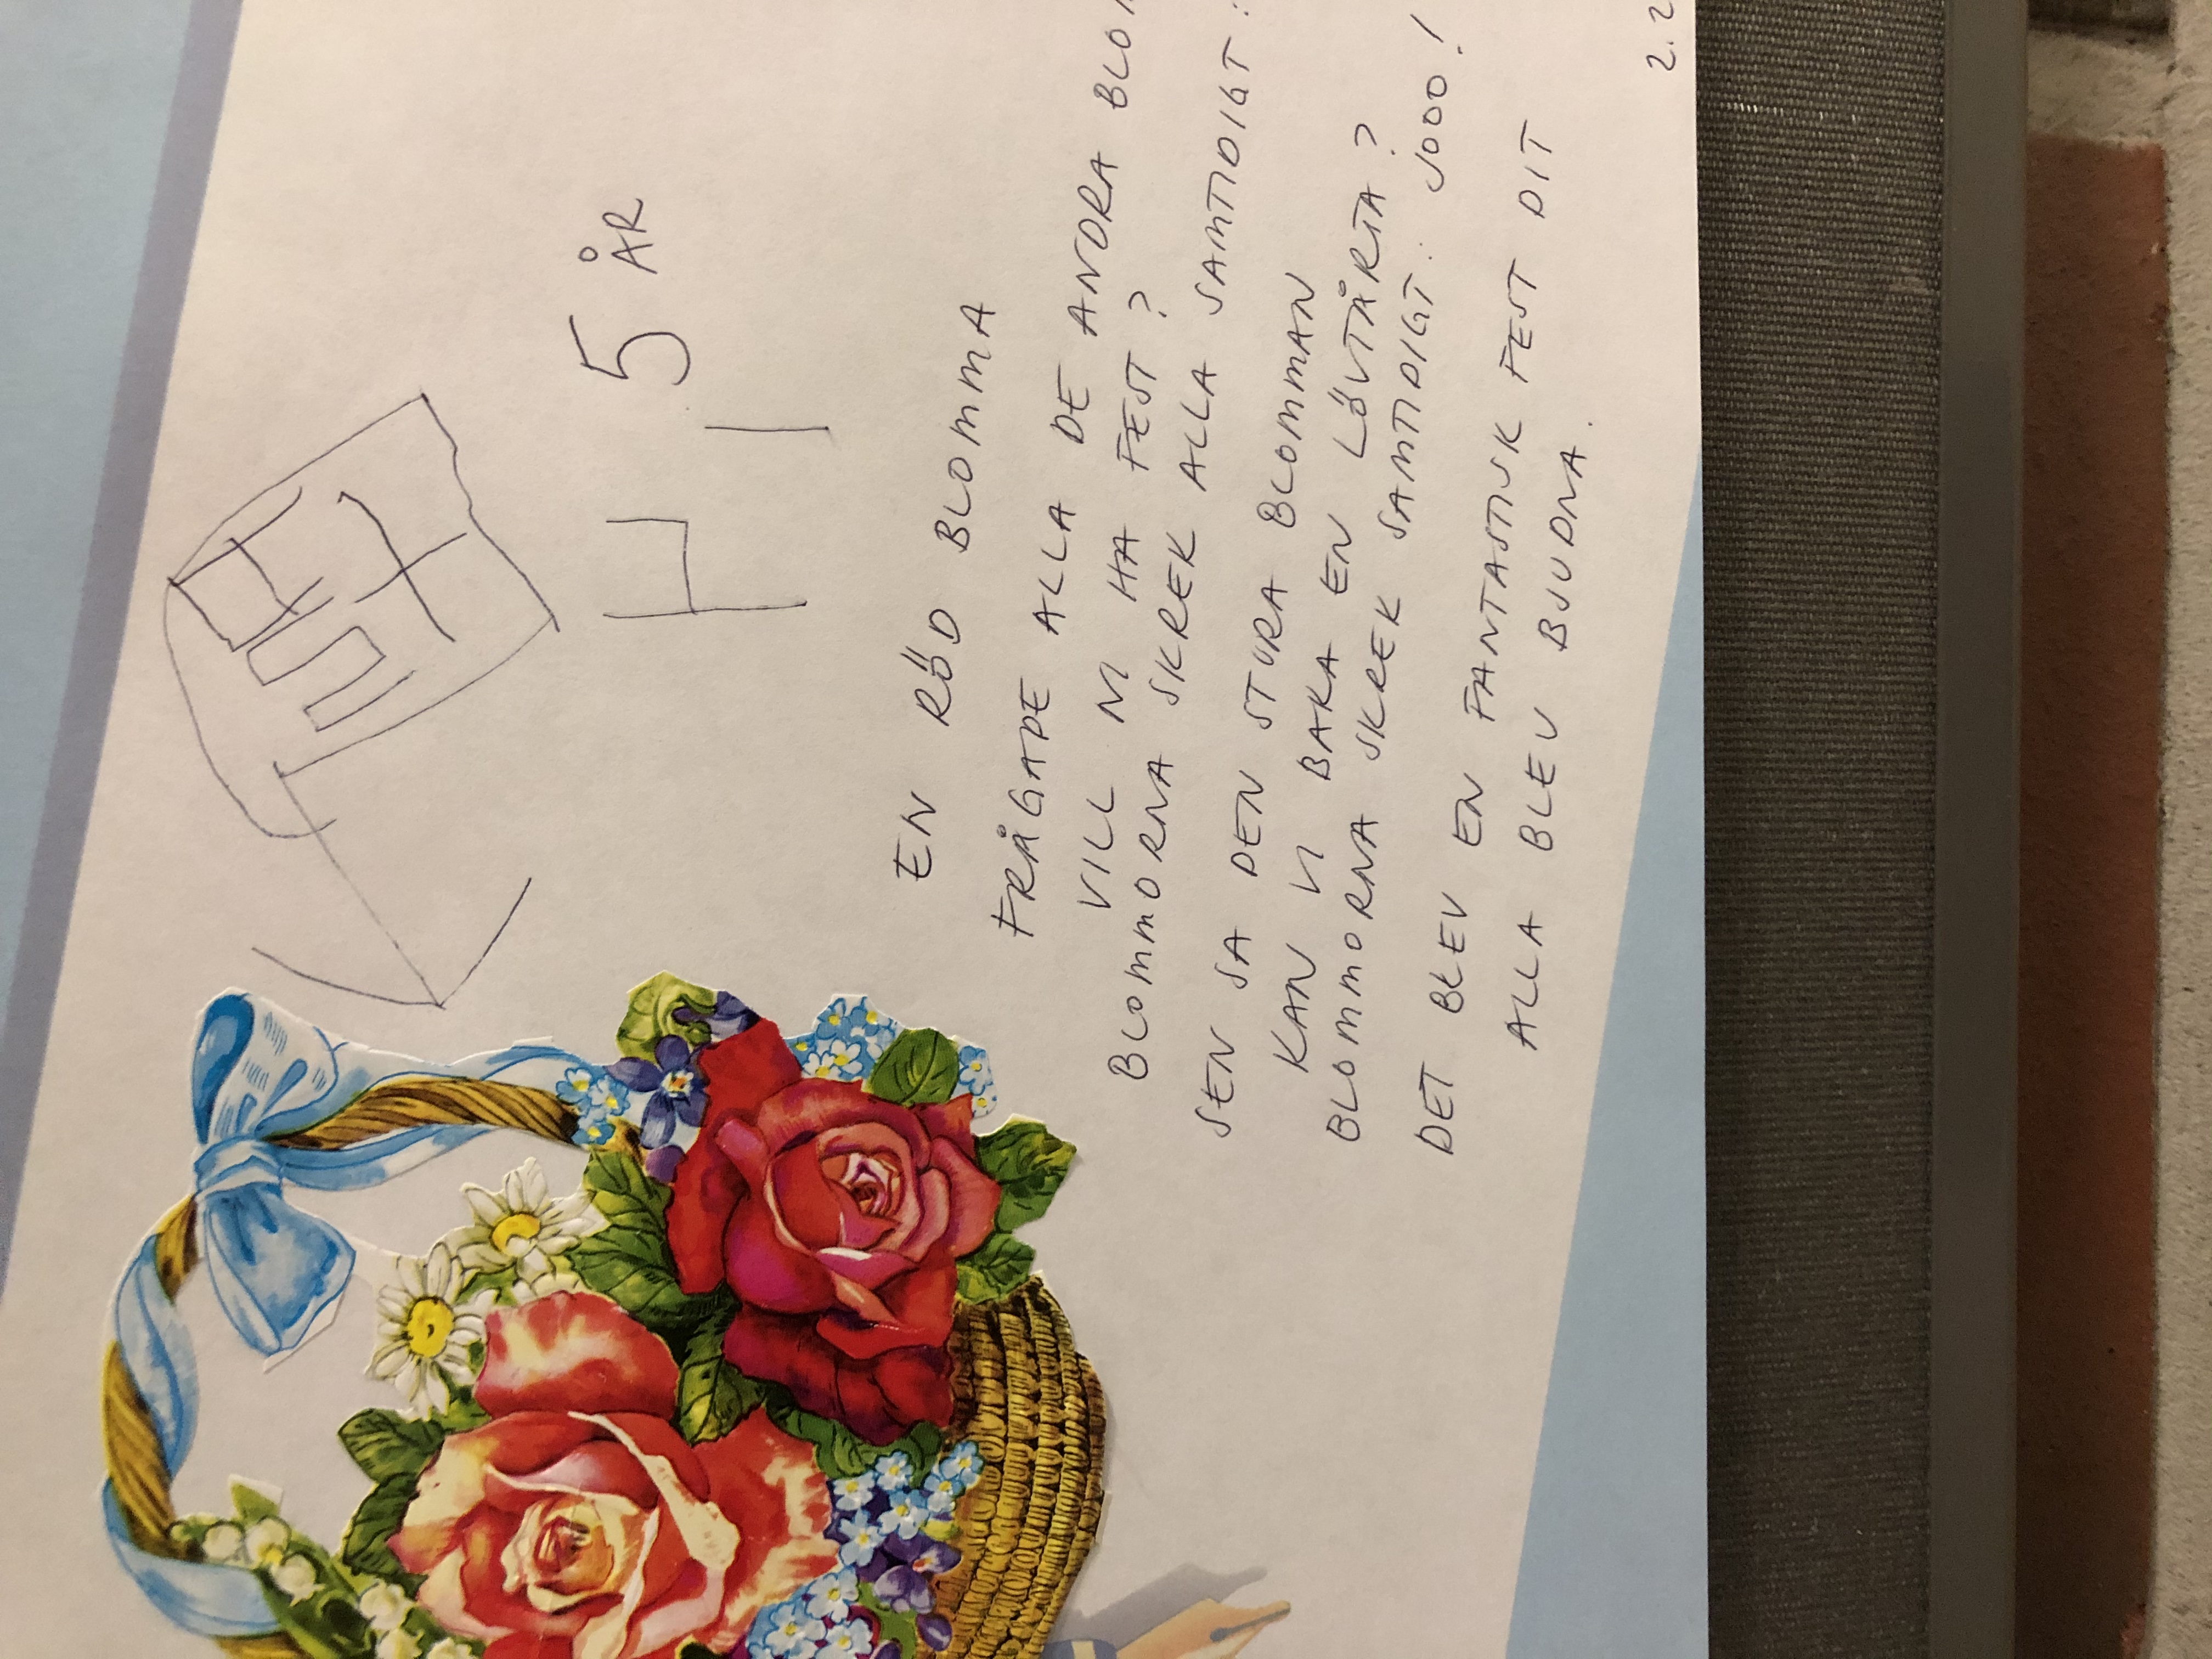 5 ÅR
EN RÖD BLOMMA
FRÅGADE ALLA DE ANDRA
VILL NI HA FEST?
BLOMMORNA SKREK ALLA SAMTIDIGT:
SEN SA DEN STORA BLOMMAN
KAN VI BAKA EN LÖVTÅRTA?
BLOMMORNA SKREK SAMTIDIGT: JOOO!
DET BLEV EN FANTASTISK FEST DIT
ALLA BLEV BJUDNA.